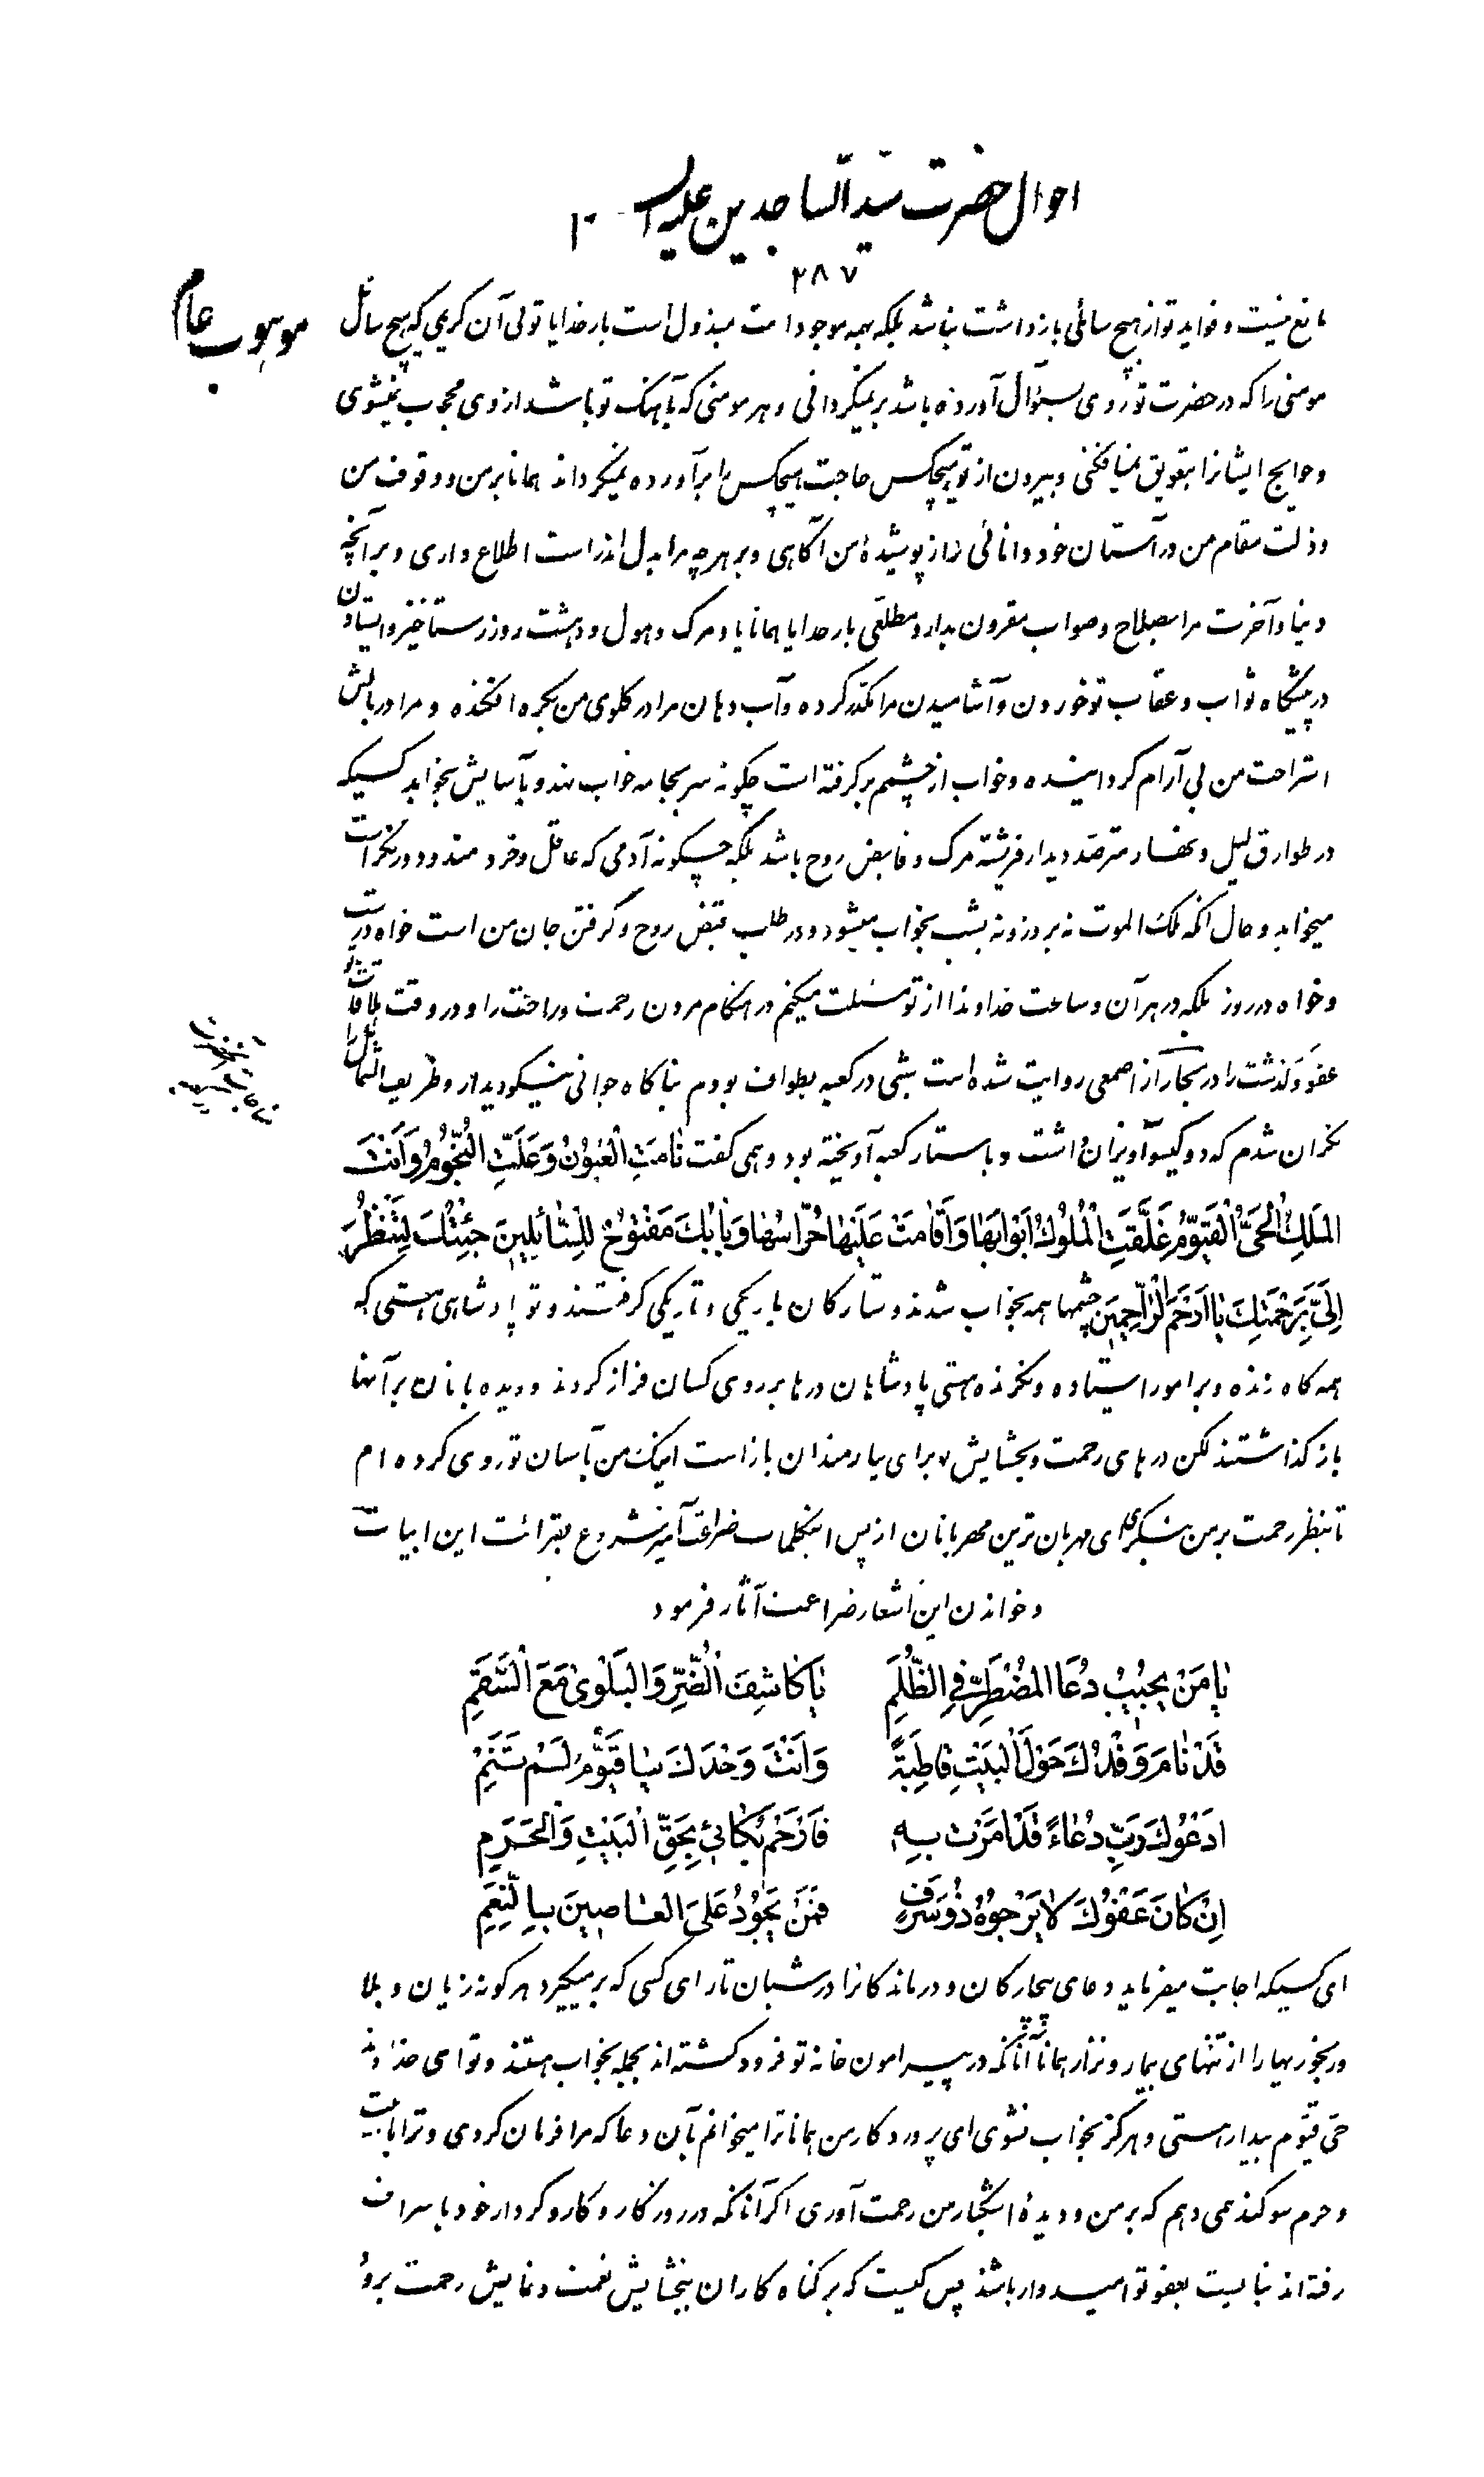 احوال حضرت سیّد السّاجدین علیه
۲۸۷
مانع نیست و فواید تو از هیچ سائلی بازداشت نباشد بلکه بهمه موجودات مبذول است بار خدایا توئی آن کریمی که هیچ سائل
موهوب عام
مومنی را که در حضرت تو روی بسئوال آورده باشد بر نمیگردانی و هر مومنی که بآهنک تو باشد از وی محجوب نمیشوی
و حوایج ایشانرا بتعویق نمیافکنی و بیرون از تو هیچکس حاجت هیچکس را برآورده نمیگرداند همانا بر من و وقوف من
و ذلت مقام من در آستان خود دانائی و از پوشیدهٔ من آگاهی و بر هرچه مرا بدل اندر است اطلاع داری و برآنچه
دنیا و آخرت مرا بصلاح و صواب مقرون بدارد مطلعی بار خدایا همانا یاد مرک و هول و دهشت روز رستاخیز و ایستادن
در پیشگاه ثواب و عقاب تو خوردن و آشامیدن مرا مکدر کرده و آب دهان مرا در گلوی من گره افکنده و مرا در بالش
استراحت من بی آرام گردانیده و خواب از چشمم برگرفته است چگونه سر بجامه خواب نهد و بآسایش بخوابد کسیکه
در طوارق لیل و نهار مترصّد دیدار فرشته مرک و قابض روح باشد بلکه چگونه آدمی که عاقل و خردمند و دورنگر است
میخوابد و حال انکه ملک الموت نه بروز و نه بشب بخواب میشود و در طلب قبض روح و گرفتن جان من است خواه در شب
و خواه در روز بلکه در هر آن و ساعت خداوندا از تو مسئلت میکنم در هنگام مردن رحمت و راحت را و در وقت ملاقات تو
عفو و گذشت را در بحار از اصمعی روایت شده است شبی در کعبه بطواف بودم بناگاه جوانی نیکو دیدار و ظریف الشمائل را
نکران شدم که دو گیسو آویزان داشت و باستار کعبه آویخته بود و همی گفت نٰامَتِ الْعُیُوْنُ وَعَلَتِ النُّجُومُ وَاَنْتَ
المَلِكُ الْحَیُّ الْقَیُّوْمُ غَلَّقَتِ الْمُلُوْكُ اَبْوٰابَهٰا وَاَقٰامَتْ عَلَیْهٰا حُرّٰاسَهٰا وَبٰابُكَ مَفْتُوْحٌ لِلسّٰائِلِیْنَ جِئْتُكَ لِتَنْظُرَ
اِلَیَّ بِرَحْمَتِكَ یٰا اَرْحَمَ الرّٰاحِمِیْنَ چشمها همه بخواب شدند و ستارکان باریکی و تاریکی گرفتند و تو پادشاهی هستی که
همه گاه زنده و بر امور ایستاده و نکرنده هستی پادشاهان درها بر روی کسان فراز کردند و دیده بانان بر آنها
باز گذاشتند لکن درهای رحمت و بخشایش تو برای نیازمندان باز است اینک من بآستان تو روی کرده ام
تا بنظر رحمت بر من بنگری ای مهربان ترین مهربانان از پس اینکلمات ضراعت آمیز شروع بقرائت این ابیات
و خواندن این اشعار ضراعت آثار فرمود
یٰا مَنْ یُجِیْبُ دُعَا المُضْطَرِّ فِی الظُّلَمِ یٰا کٰاشِفَ الضُّرِّ وَالبَلْوٰی مَعَ السَّقَمِ
قَدْ نٰامَ وَفْدُكَ حَوْلَ الْبَیْتِ قٰاطِبَةً وَاَنْتَ وَحْدَكَ یٰا قَیُّوْمُ لَمْ تَنَمِ
اَدْعُوْكَ رَبِّ دُعٰاءً قَدْ اَمَرْتَ بِهٖ فَارْحَمْ بُکٰائیٖ بِحَقِّ الْبَیْتِ وَالْحَرَمِ
اِنْ کٰانَ عَفْوُكَ لٰا یَرْجُوْهُ ذُوْ سَرَفٍ فَمَنْ یَجُوْدُ عَلَی الْعٰاصِیْنَ بِالنِّعَمِ
ای کسیکه اجابت میفرماید دعای بیچارکان و درماندکانرا در شبان تار ای کسی که بر میگیرد هر گونه زیان و بلا
و رنجوریها را از تنهای بیمار و نزار همانا آنانکه در پیرامون خانه تو فرود گشته اند بجمله بخواب هستند و تو ای خداوند
حیّ قیّوم بیدار هستی و هرگز بخواب نشوی ای پروردکار من همانا ترا میخوانم بآن دعا که مرا فرمان کردی و ترا به بیت
و حرم سوگند همی دهم که بر من و دیدهٔ اشکبار من رحمت آوری اگر آنانکه در روزگار و کار و کردار خود باسراف
رفته اند نبایست بعفو تو امیدوار باشند پس کیست که بر گناه کاران ببخشایش نعمت و نمایش رحمت برو